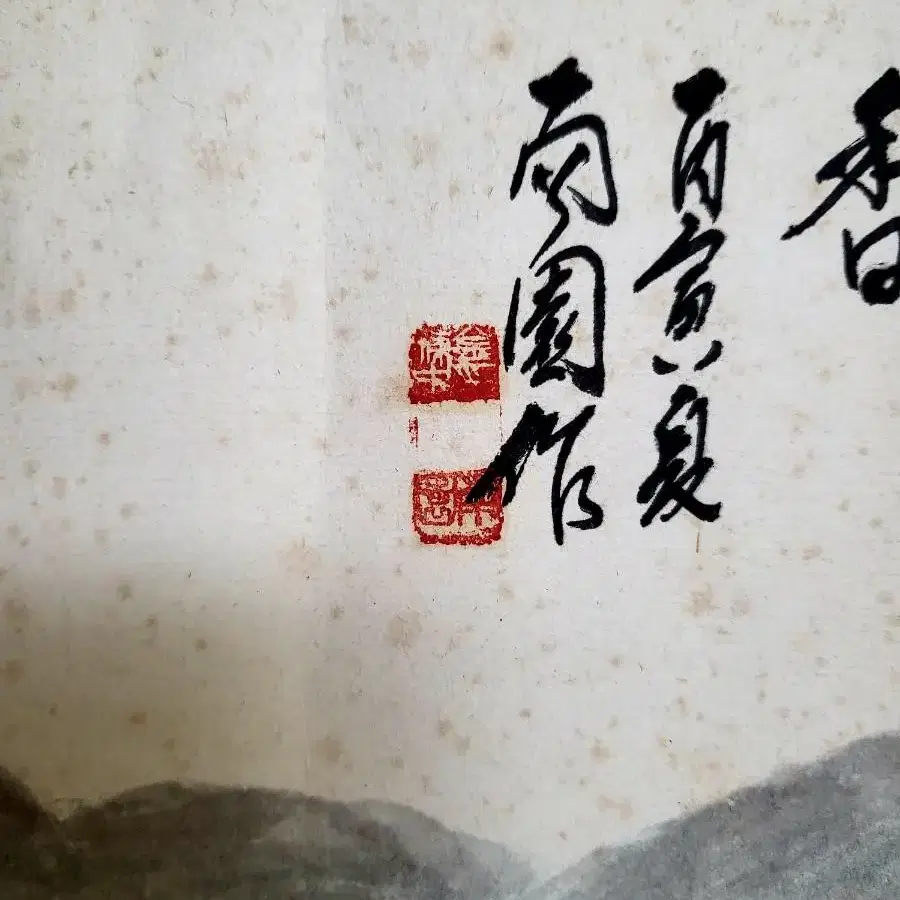 香
丙寅夏
南園作